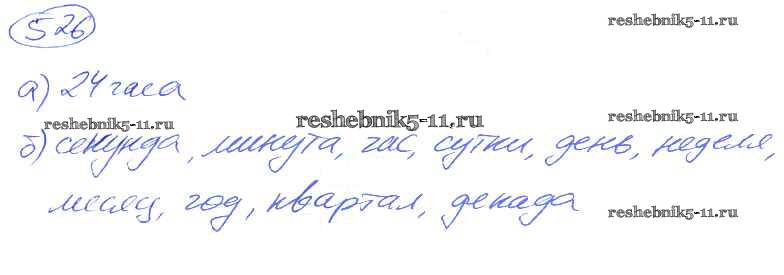 526
reshebnik5-11.ru
а) 24 часа
reshebnik5-11.ru
reshebnik5-11.ru
reshebnik5-11.ru
б) секунда, минута, час, сутки, день, неделя,
месяц, год, квартал, декада
reshebnik5-11.ru